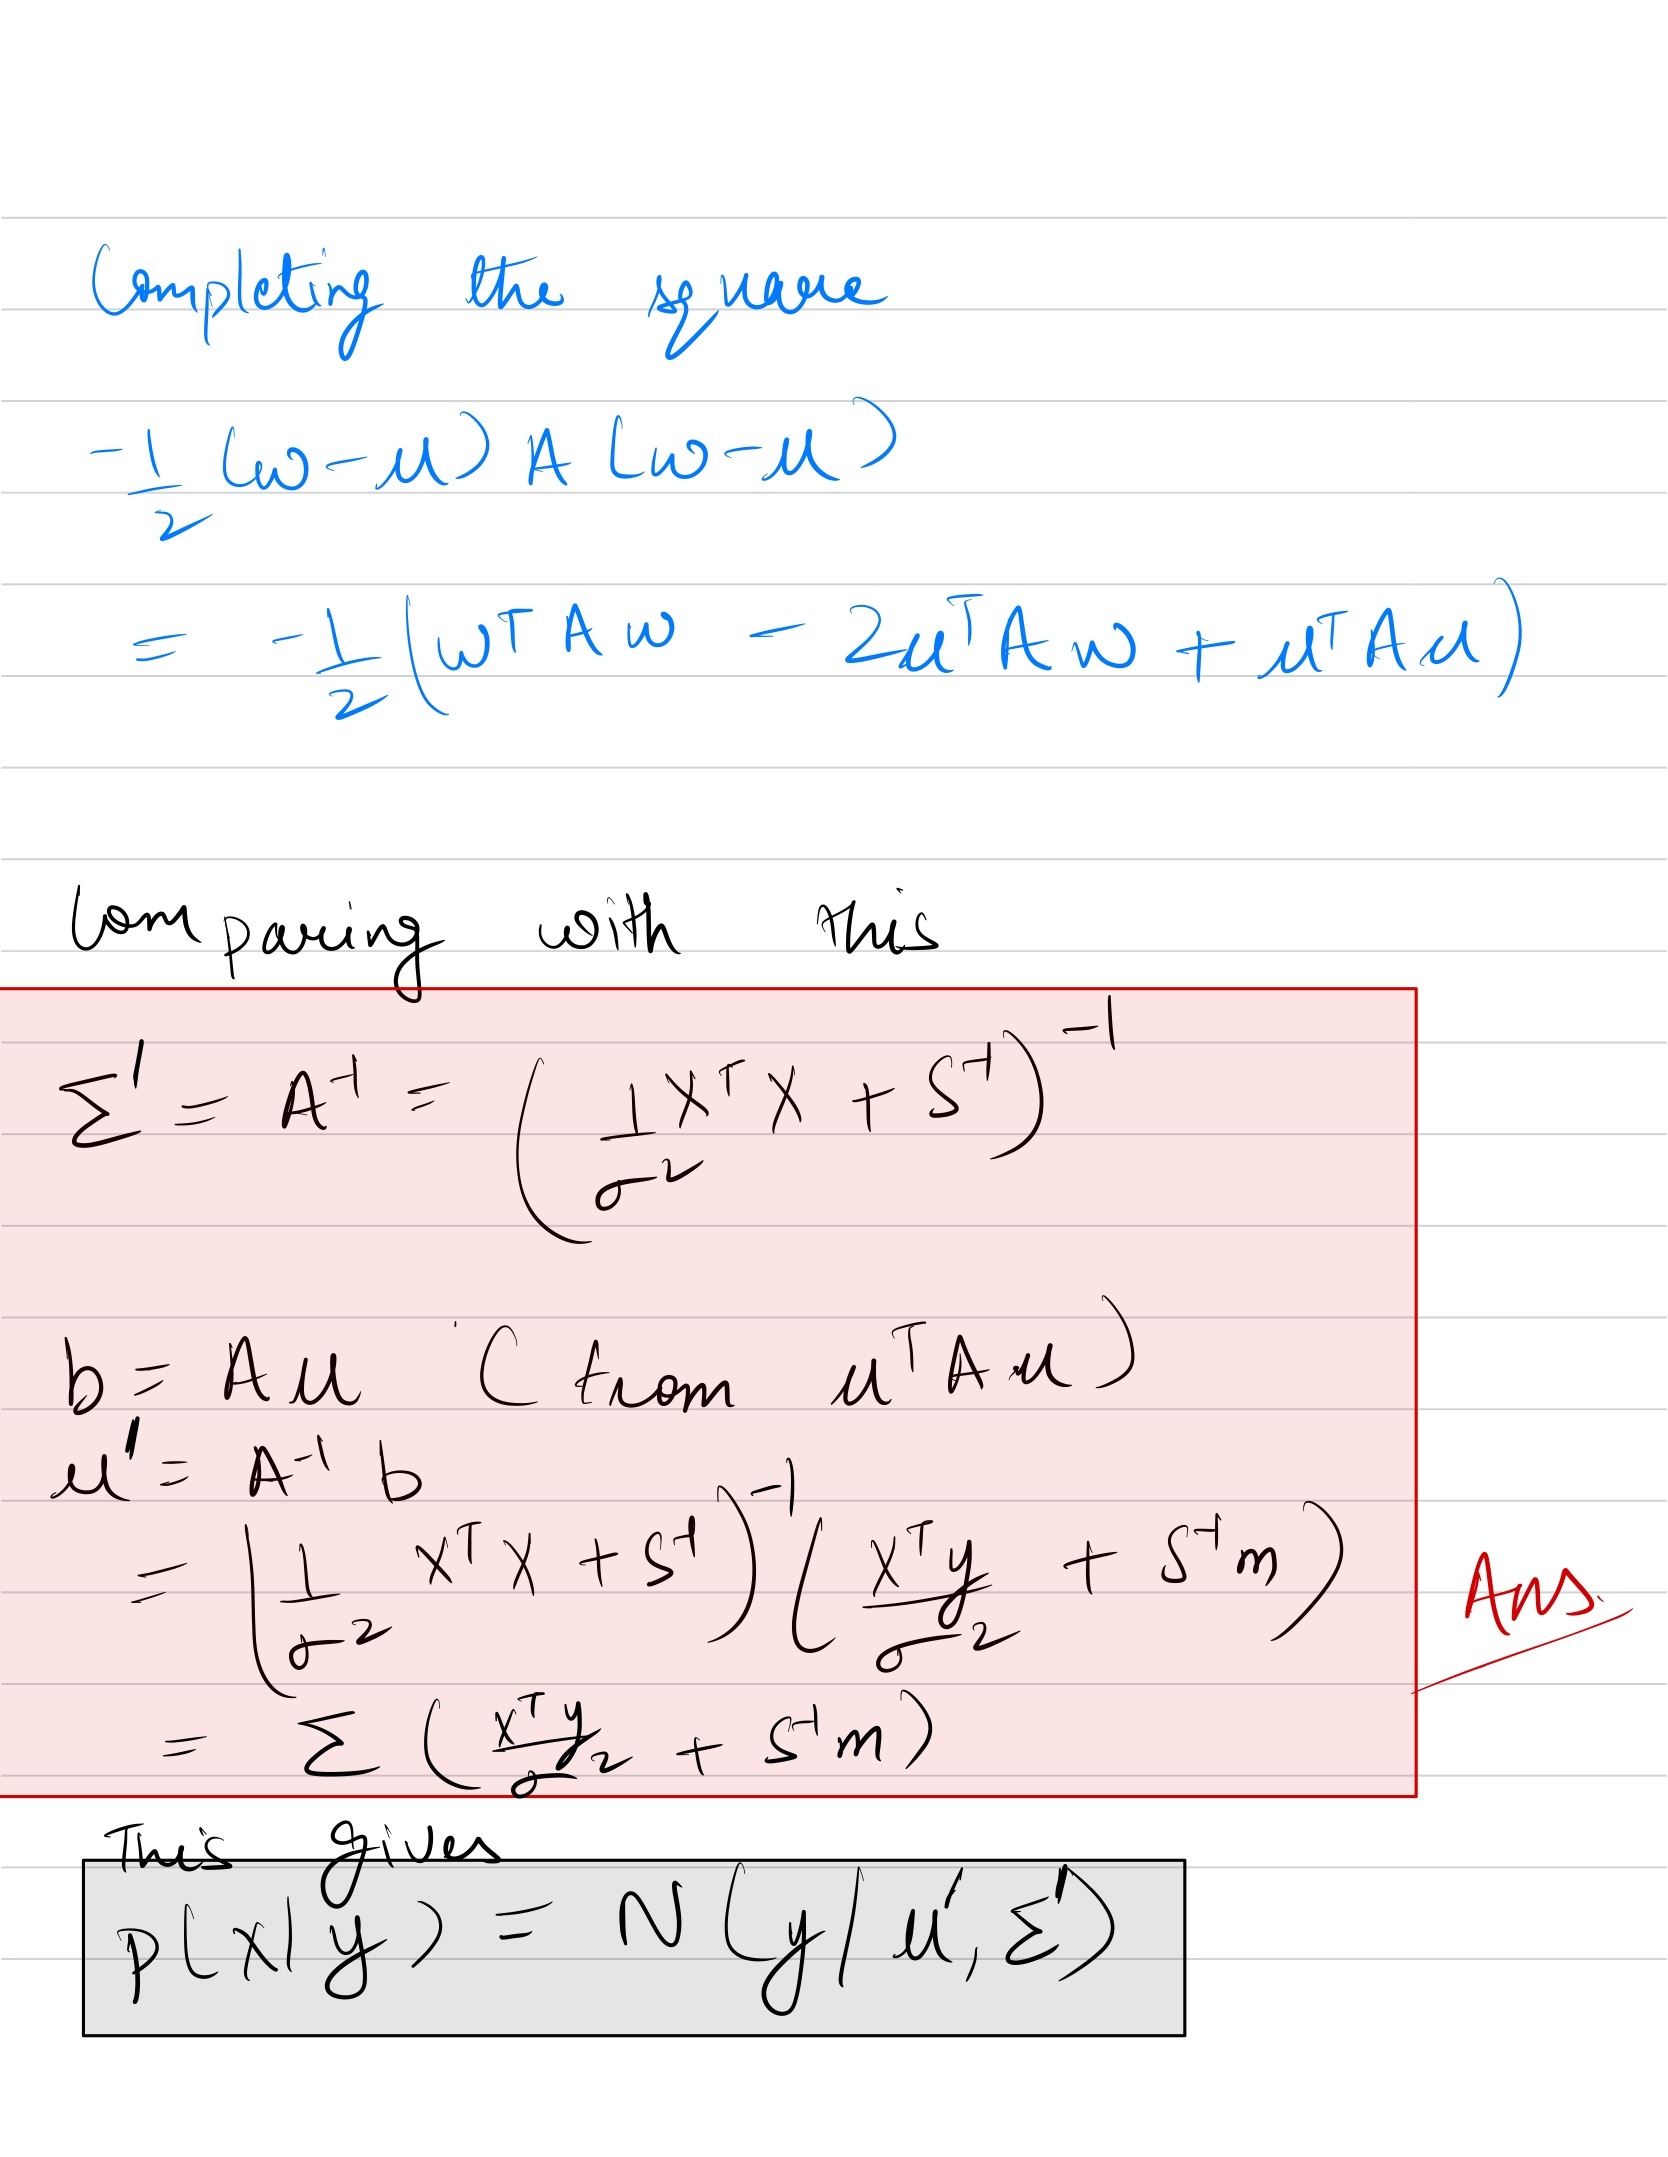 Completing the square
-1/2 (ω-μ) A (ω-μ)
= -1/2 (ωᵀAω - 2μᵀAω + μᵀAμ)
Comparing with this
Σ' = A⁻¹ = (1/σ² XᵀX + S⁻¹)⁻¹
b = Aμ (from μᵀAμ)
μ' = A⁻¹ b
= (1/σ² XᵀX + S⁻¹)⁻¹ (Xᵀy/σ² + S⁻¹m)
Ans.
= Σ (Xᵀy/σ² + S⁻¹m)
This gives
p(x|y) = N(y/μ', Σ')